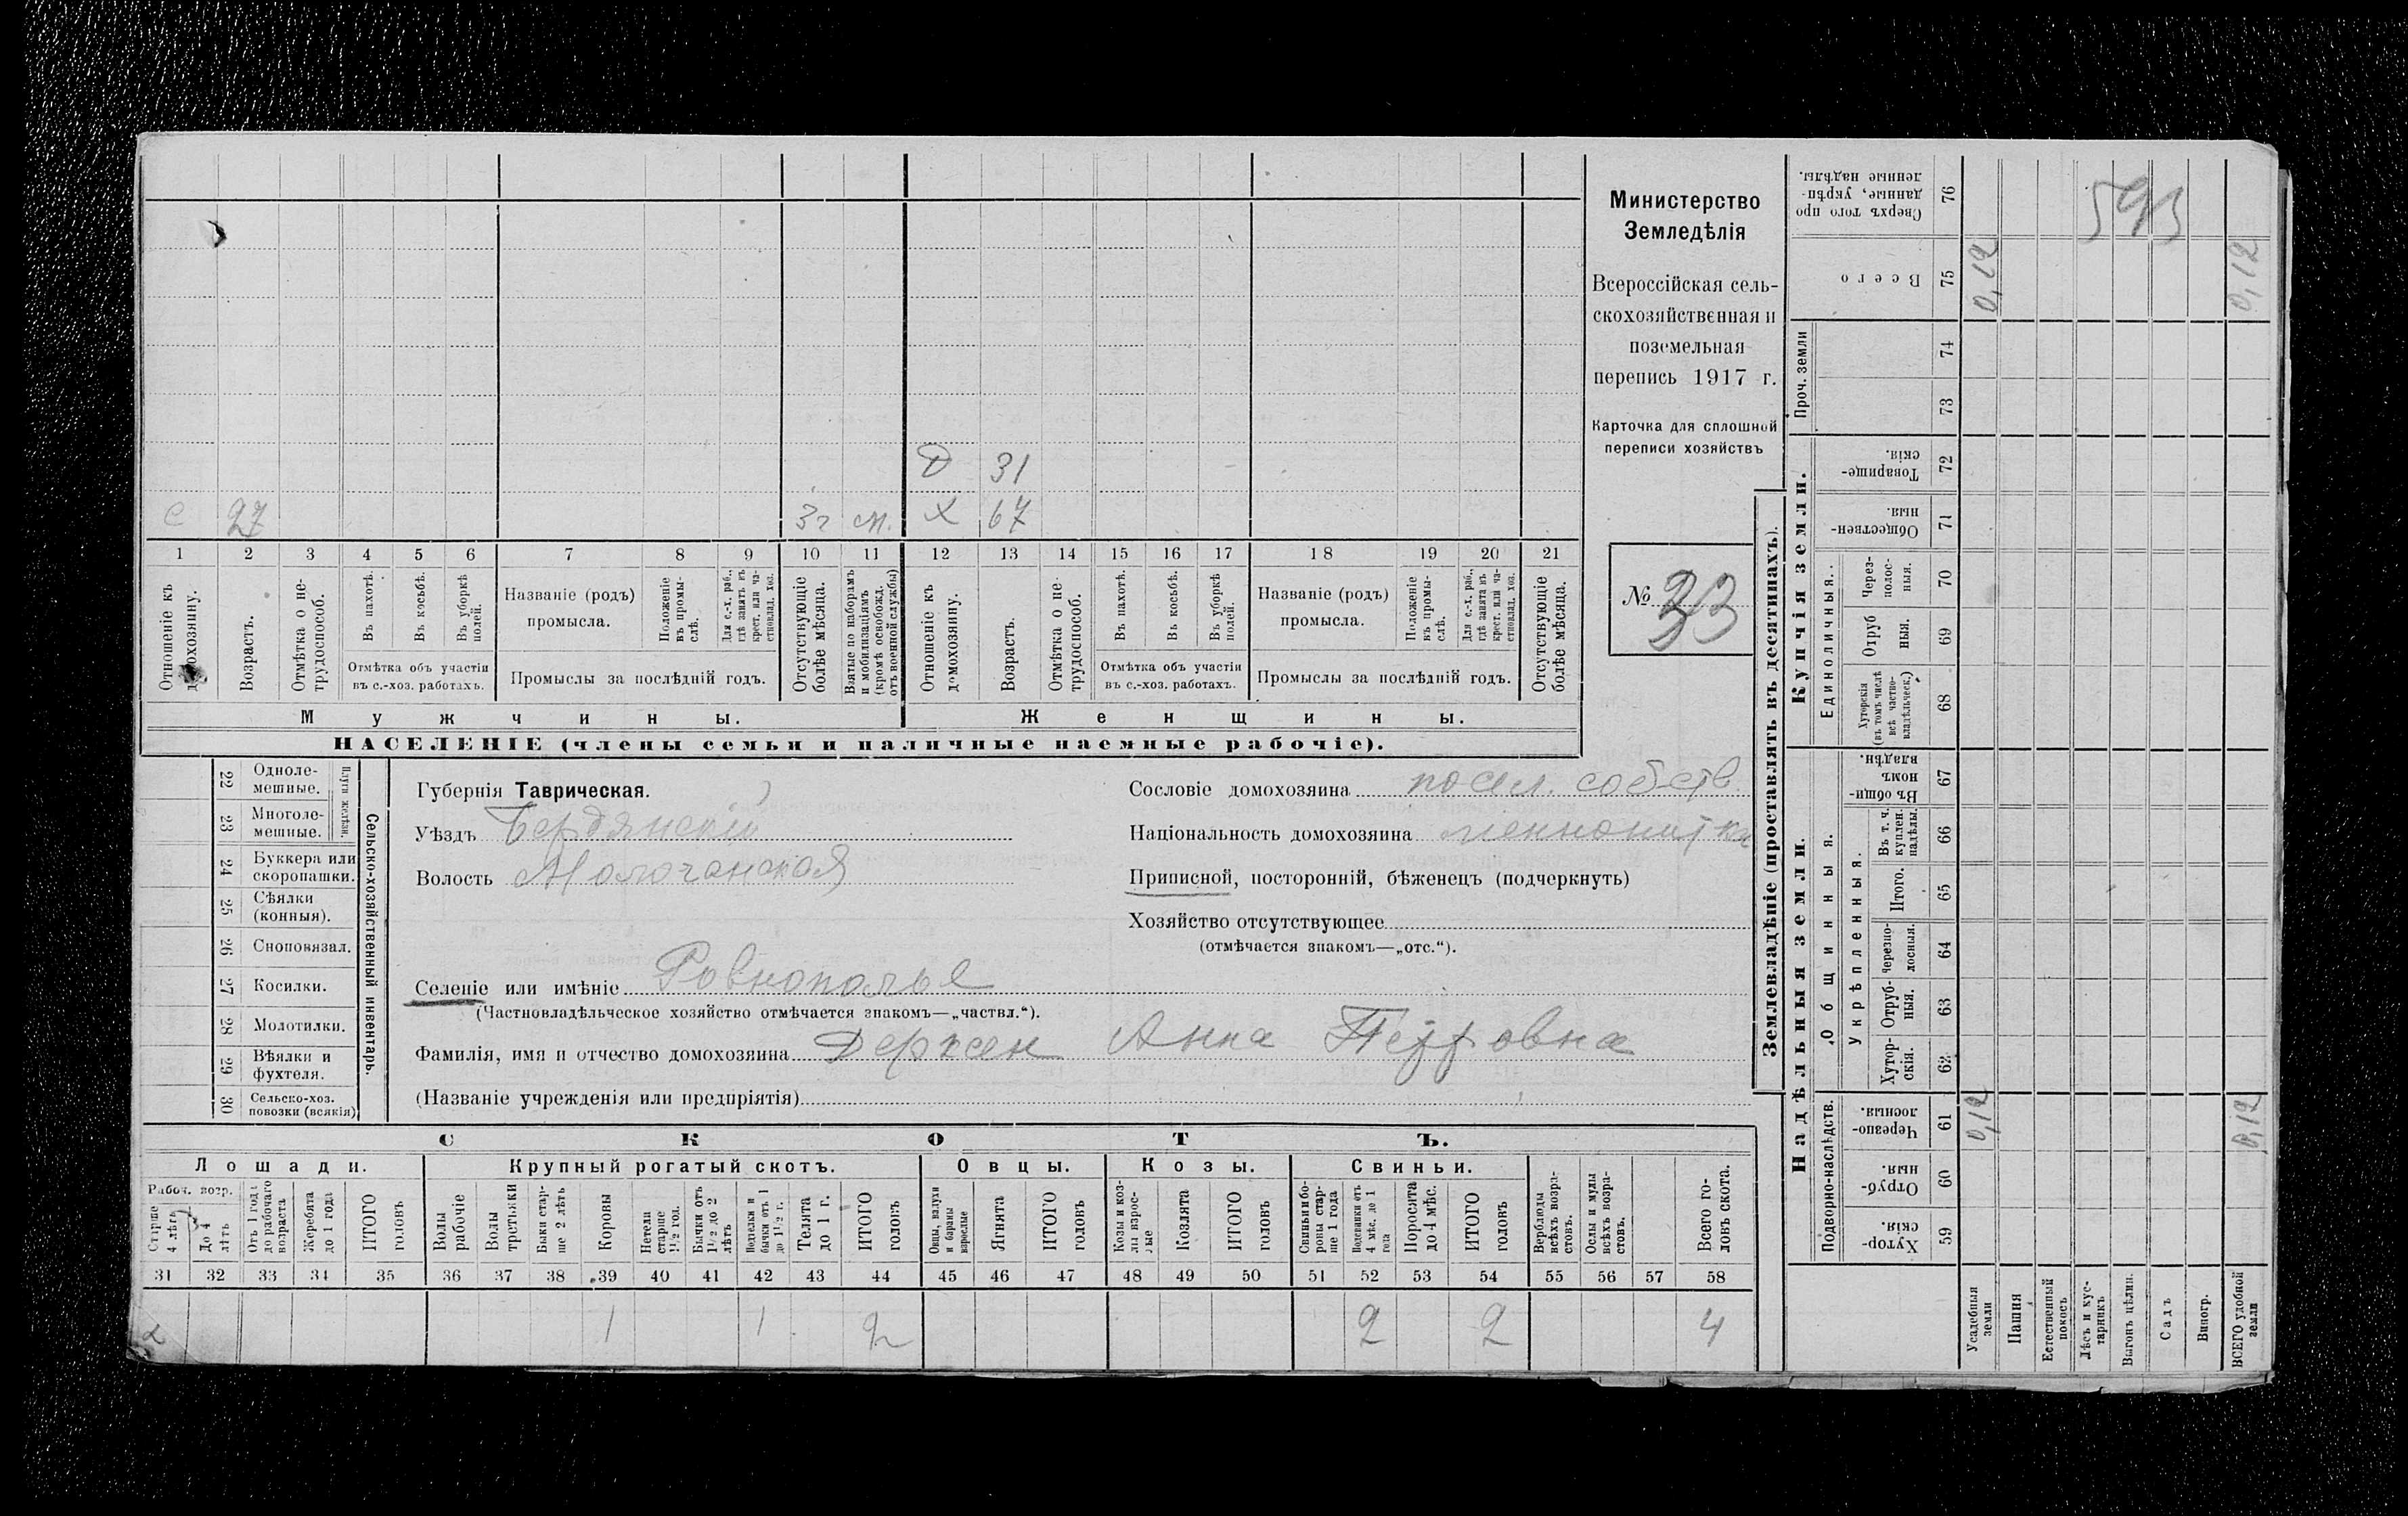 Министерство
Земледѣлія
Всероссійская сель-
скохозяйственная и
поземельная
перепись 1917 г.
Карточка для сплошной
переписи хозяйствъ
№ 33
Д 31
С 27 3 г м. Х 67
1 2 3 4 5 6 7 8 9 10 11 12 13 14 15 16 17 18 19 20 21
Отношеніе къ домохозяину.
Возрастъ.
Отмѣтка о не-
трудоспособ.
Въ пахотѣ.
Въ косьбѣ.
Въ уборкѣ
полей.
Отмѣтка объ участіи
въ с.-хоз. работахъ.
Названіе (родъ)
промысла.
Положеніе
въ промы-
слѣ.
Для с.-х. раб.,
гдѣ занятъ въ
крест. или ча-
стновлад. хоз.
Промыслы за послѣдній годъ.
Отсутствующіе
болѣе мѣсяца.
Взятые по наборамъ
и мобилизаціямъ
(кромѣ освобожд.
отъ военной службы)
Отношеніе къ
домохозяину.
Возрастъ.
Отмѣтка о не-
трудоспособ.
Въ пахотѣ.
Въ косьбѣ.
Въ уборкѣ
полей.
Отмѣтка объ участіи
въ с.-хоз. работахъ.
Названіе (родъ)
промысла.
Положеніе
въ промы-
слѣ.
Для с.-х. раб.,
гдѣ занята въ
крест. или ча-
стновлад. хоз.
Промыслы за послѣдній годъ.
Отсутствующіе
болѣе мѣсяца.
Мужчины.
Женщины.
НАСЕЛЕНІЕ (члены семьи и наличные наемные рабочіе).
22 Одноле-
мешные.
23 Многоле-
мешные.
Плуги желѣзн.
24 Буккера или
скоропашки.
25 Сѣялки
(конныя).
26 Сноповязал.
27 Косилки.
28 Молотилки.
29 Вѣялки и
фухтеля.
30 Сельско-хоз.
повозки (всякія)
Сельско-хозяйственный инвентарь.
Губернія Таврическая.
Уѣздъ Бердянскій
Волость Молочанская
Селеніе или имѣніе Ровнополье
(Частновладѣльческое хозяйство отмѣчается знакомъ—„частвл.“).
Фамилія, имя и отчество домохозяина Дерксен Анна Петровна
(Названіе учрежденія или предпріятія)
Сословіе домохозяина посел. собств.
Національность домохозяина меннонитка
Приписной, посторонній, бѣженецъ (подчеркнуть)
Хозяйство отсутствующее
(отмѣчается знакомъ—„отс.“).
СКОТЪ.
Лошади.
Крупный рогатый скотъ.
Овцы.
Козы.
Свиньи.
Рабоч. возр.
Старше
4 лѣтъ
До 4
лѣтъ
Отъ 1 года
до рабочаго
возраста
Жеребята
до 1 года
ИТОГО
головъ
Волы
рабочіе
Волы
третьяки
Быки стар-
ше 2 лѣтъ
Коровы
Нетели
старше
1½ год.
Бычки отъ
1½ до 2
лѣтъ
Подтелки и
бычки отъ 1
до 1½ г.
Телята
до 1 г.
ИТОГО
головъ
Овцы, валухи
и бараны
взрослые
Ягнята
ИТОГО
головъ
Козы и коз-
лы взрос-
лые
Козлята
ИТОГО
головъ
Свиньи и бо-
ровы стар-
ше 1 года
Подсвинки отъ
4 мѣс. до 1
года
Поросята
до 4 мѣс.
ИТОГО
головъ
Верблюды
всѣхъ возра-
стовъ.
Ослы и мулы
всѣхъ возра-
стовъ.
Всего го-
ловъ скота.
31 32 33 34 35 36 37 38 39 40 41 42 43 44 45 46 47 48 49 50 51 52 53 54 55 56 57 58
1 1 2 2 2 4
Землевладѣніе (проставлять въ десятинахъ).
Надѣльныя земли.
Купчія земли.
Проч. земли
Подворно-наслѣдств.
Общинныя.
Укрѣпленныя.
Единоличныя.
Хутор-
скія. 59
Отруб-
ныя. 60
Черезпо-
лосныя. 61
Хутор-
скія. 62
Отруб-
ныя. 63
Черезпо-
лосныя. 64
Итого. 65
Въ т. ч.
куплен.
надѣлы. 66
Въ общи-
номъ
владѣн. 67
Хуторскія
(въ томъ числѣ
всѣ частно-
владѣльческ.) 68
Отруб
ныя. 69
Через-
полос-
ныя. 70
Обществен-
ныя. 71
Товарище-
скія. 72
73
74
Всего 75
Сверхъ того про
данные, укрѣп-
ленные надѣлы. 76
Усадебныя
земли
Пашня
Естественный
покосъ
Лѣсъ и кус-
тарникъ
Выгонъ цѣлин.
Садъ
Виногр.
ВСЕГО удобной
земли
0,12
0,12
0,12
0,12
593